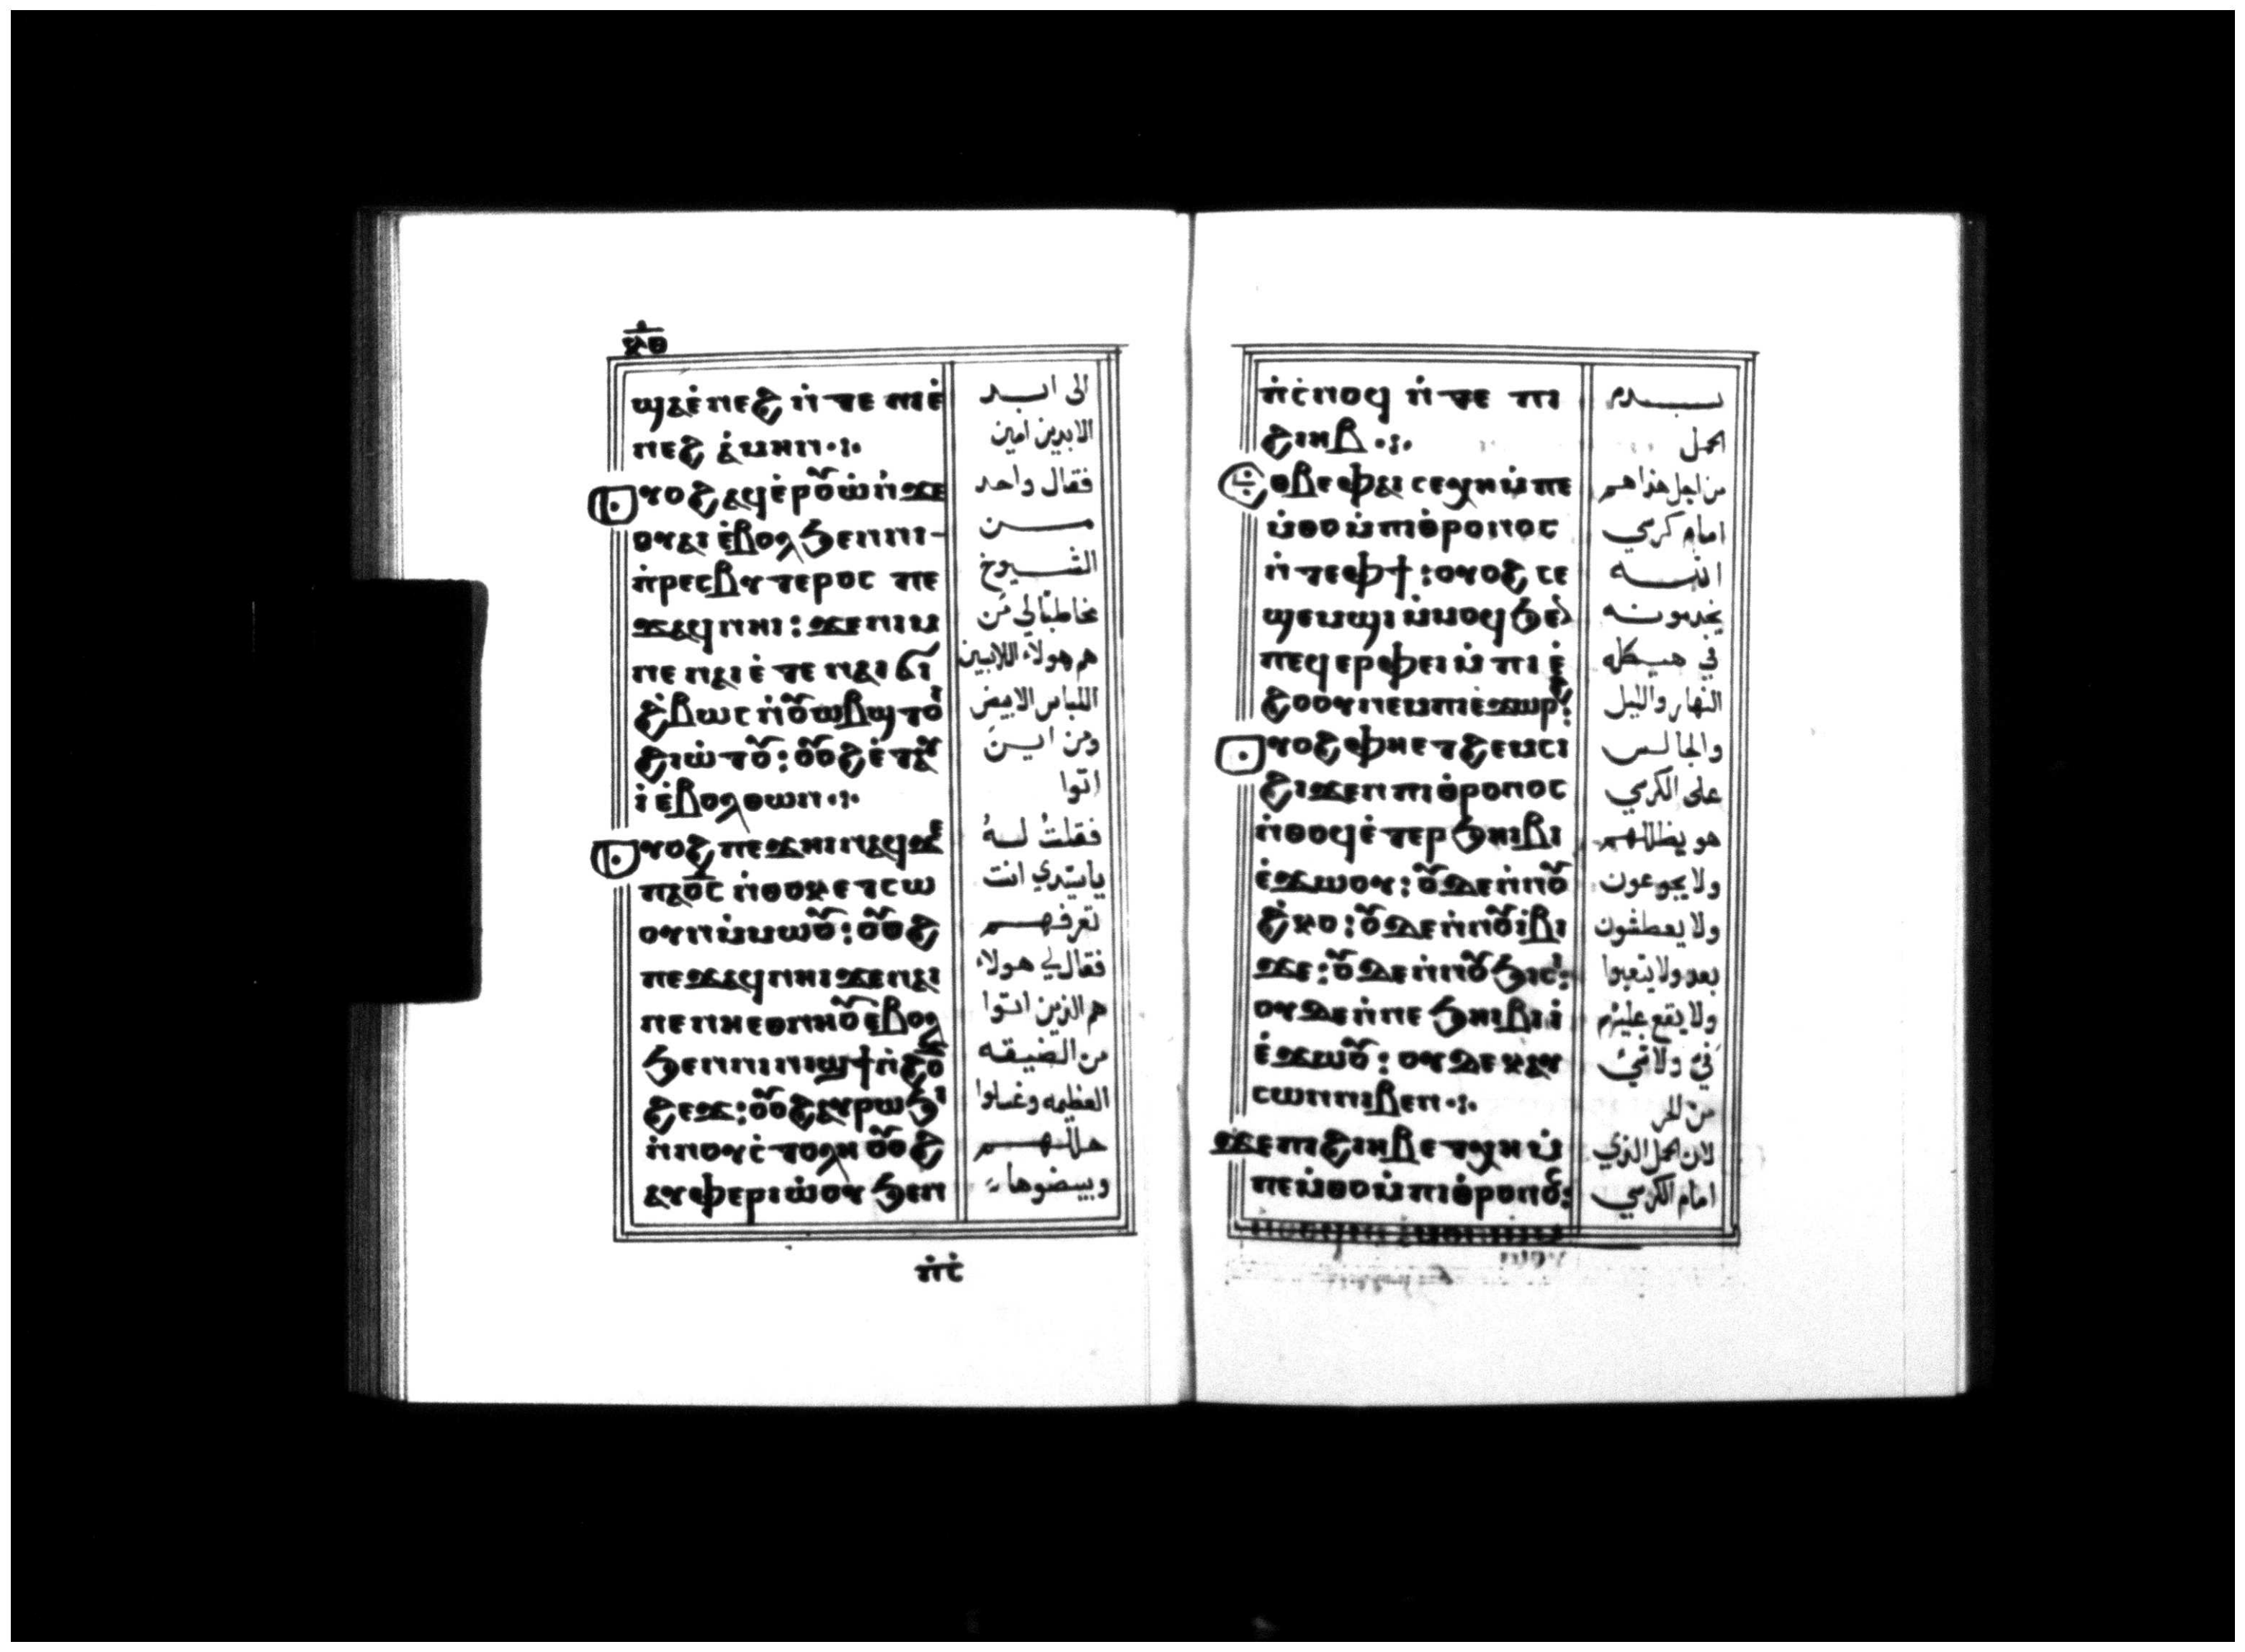 ⲕⲑ
ϣⲁⲉ̇ⲛⲉϩ ⲛ̇ⲧⲉ ⲡⲓⲉ̇
ⲛⲉϩ ⲁ̇ⲙⲏⲛ·:·
ⲟⲩⲟϩ ⲁϥⲉ̇ⲣⲟⲩⲱ̇ ⲛ̇ϫⲉ
ⲟⲩⲁⲓ ⲉ̇ⲃⲟⲗϧⲉⲛⲛⲓ-
ⲡ̇ⲣⲉⲥⲃⲩⲧⲉⲣⲟⲥ ⲡⲉ
ϫⲁϥⲛⲏⲓ : ϫⲉⲛⲓⲙ
ⲛⲉ ⲛⲁⲓ ⲉ̇ⲧⲉ ⲛⲁⲓ
ϩ̇ⲃⲱⲥ ⲛ̇ⲟⲩⲱⲃϣ ⲧⲟⲓ
ϩⲓⲱ̇ⲧⲟⲩ : ⲟⲩⲟϩ ⲉ̇ⲧⲁⲩ
ⲓ̇ ⲉ̇ⲃⲟⲗⲑⲱⲛ·:·
ⲟⲩⲟϩ ⲡⲉϫⲏⲓⲛⲁϥ ϫⲉ
ⲡⲁⲟ̅ⲥ̅ ⲛ̇ⲑⲟⲕ ⲉⲧⲥⲱ
ⲟⲩⲛⲙ̇ⲙⲱⲟⲩ : ⲟⲩⲟϩ
ⲡⲉϫⲁϥⲛⲏⲓ ϫⲉⲛⲁⲓ
ⲡⲉ ⲛⲏⲉⲑⲛⲏⲟⲩ ⲉ̇ⲃⲟⲗ
ϧⲉⲛⲡⲓⲛⲓϣϯ ⲛ̇ϩⲟ
ϩⲉϫ : ⲟⲩⲟϩ ⲁⲩⲣⲱϧⲓ
ⲛ̇ⲛⲟⲩⲥ̇ⲧⲟⲗⲏ ⲟⲩⲟϩ
ⲁⲩⲫⲉⲣⲓⲱ̇ⲟⲩ ϧⲉⲛ
ⲡ̇ⲥ̇
الى ابد
الابدين امين
فقال واحد
من
الشيوخ
مخاطبًا لي من
هم هولاء اللابسين
اللباس الابيض
ومن اين
اتوا
فقلت له
ياسيدي انت
تعرفهم
فقال لي هولاء
هم الذين اتوا
من الضيقه
العظيمه وغسلوا
حللهم
وبيضوها
ⲡ̇ⲥ̇ⲛⲟϥ ⲛ̇ⲧⲉ ⲡⲓ
ϩⲓⲏⲃ·:·
ⲉⲑⲃⲉⲫⲁⲓ ⲥⲉⲭⲏ ⲙ̇ⲡⲉ
ⲙ̇ⲑⲟ ⲙ̇ⲡⲓⲑ̇ⲣⲟⲛⲟⲥ
ⲛ̇ⲧⲉⲫϯ : ⲟⲩⲟϩ ⲥⲉ
ϣⲉⲙϣⲓ ⲙ̇ⲙⲟϥ ϧⲉⲛ
ⲡⲉϥⲉⲣⲫⲉⲓ ⲙ̇ⲡⲓⲉ̇
ϩⲟⲟⲩ ⲛⲉⲙⲡⲓⲉ̇ϫⲱⲣϩ :
ⲟⲩⲟϩ ⲫⲏⲉⲧϩⲉⲙⲥⲓ
ϩⲓϫⲉⲛⲡⲓⲑ̇ⲣⲟⲛⲟⲥ
ⲛ̇ⲑⲟϥ ⲉ̇ⲧⲉⲣϧⲏⲓⲃⲓ
ⲉ̇ϫⲱⲟⲩ : ⲟⲩⲇⲉ ⲛ̇ⲛⲟⲩ
ϩ̇ⲕⲟ : ⲟⲩⲇⲉ ⲛ̇ⲛⲟⲩⲓ̇ⲃⲓ
ϫⲉ : ⲟⲩⲇⲉ ⲛ̇ⲛⲟⲩϧⲓⲥⲓ :
ⲟⲩⲇⲉ ⲛ̇ⲛⲉ ϧⲏⲓⲃⲓ ⲓ̇
ⲉ̇ϫⲱⲟⲩ : ⲟⲩⲇⲉ ⲕⲁⲩ
ⲥⲱⲛⲛⲓⲃⲉⲛ·:·
ϫⲉⲡⲓϩⲓⲏⲃ ⲉⲧⲭⲏ ⲙ̇
ⲡⲉⲙ̇ⲑⲟ ⲙ̇ⲡⲓⲑ̇ⲣⲟⲛⲟⲥ :
بدم
الحمل
من اجل هذا هم
امام كرسي
الله
يخدمونه
في هيكله
النهار والليل
والجالس
على الكرسي
هو يظللهم
ولا يجوعون
ولا يعطشون
بعد ولا يتعبوا
ولا يقع عليهم
في ولا شي
من الحر
لان الحمل الذي
امام الكرسي